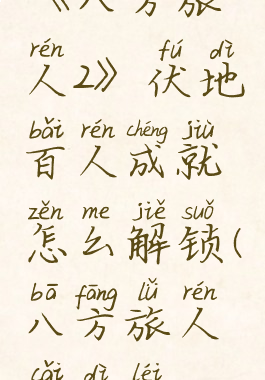 《八方旅
rén fú dì
人2》 伏地
bǎi rén chéng jiù
百人成就
zěn me jiě suǒ
怎么解锁(
bā fāng lǚ rén
八方旅人
cǎi dì léi